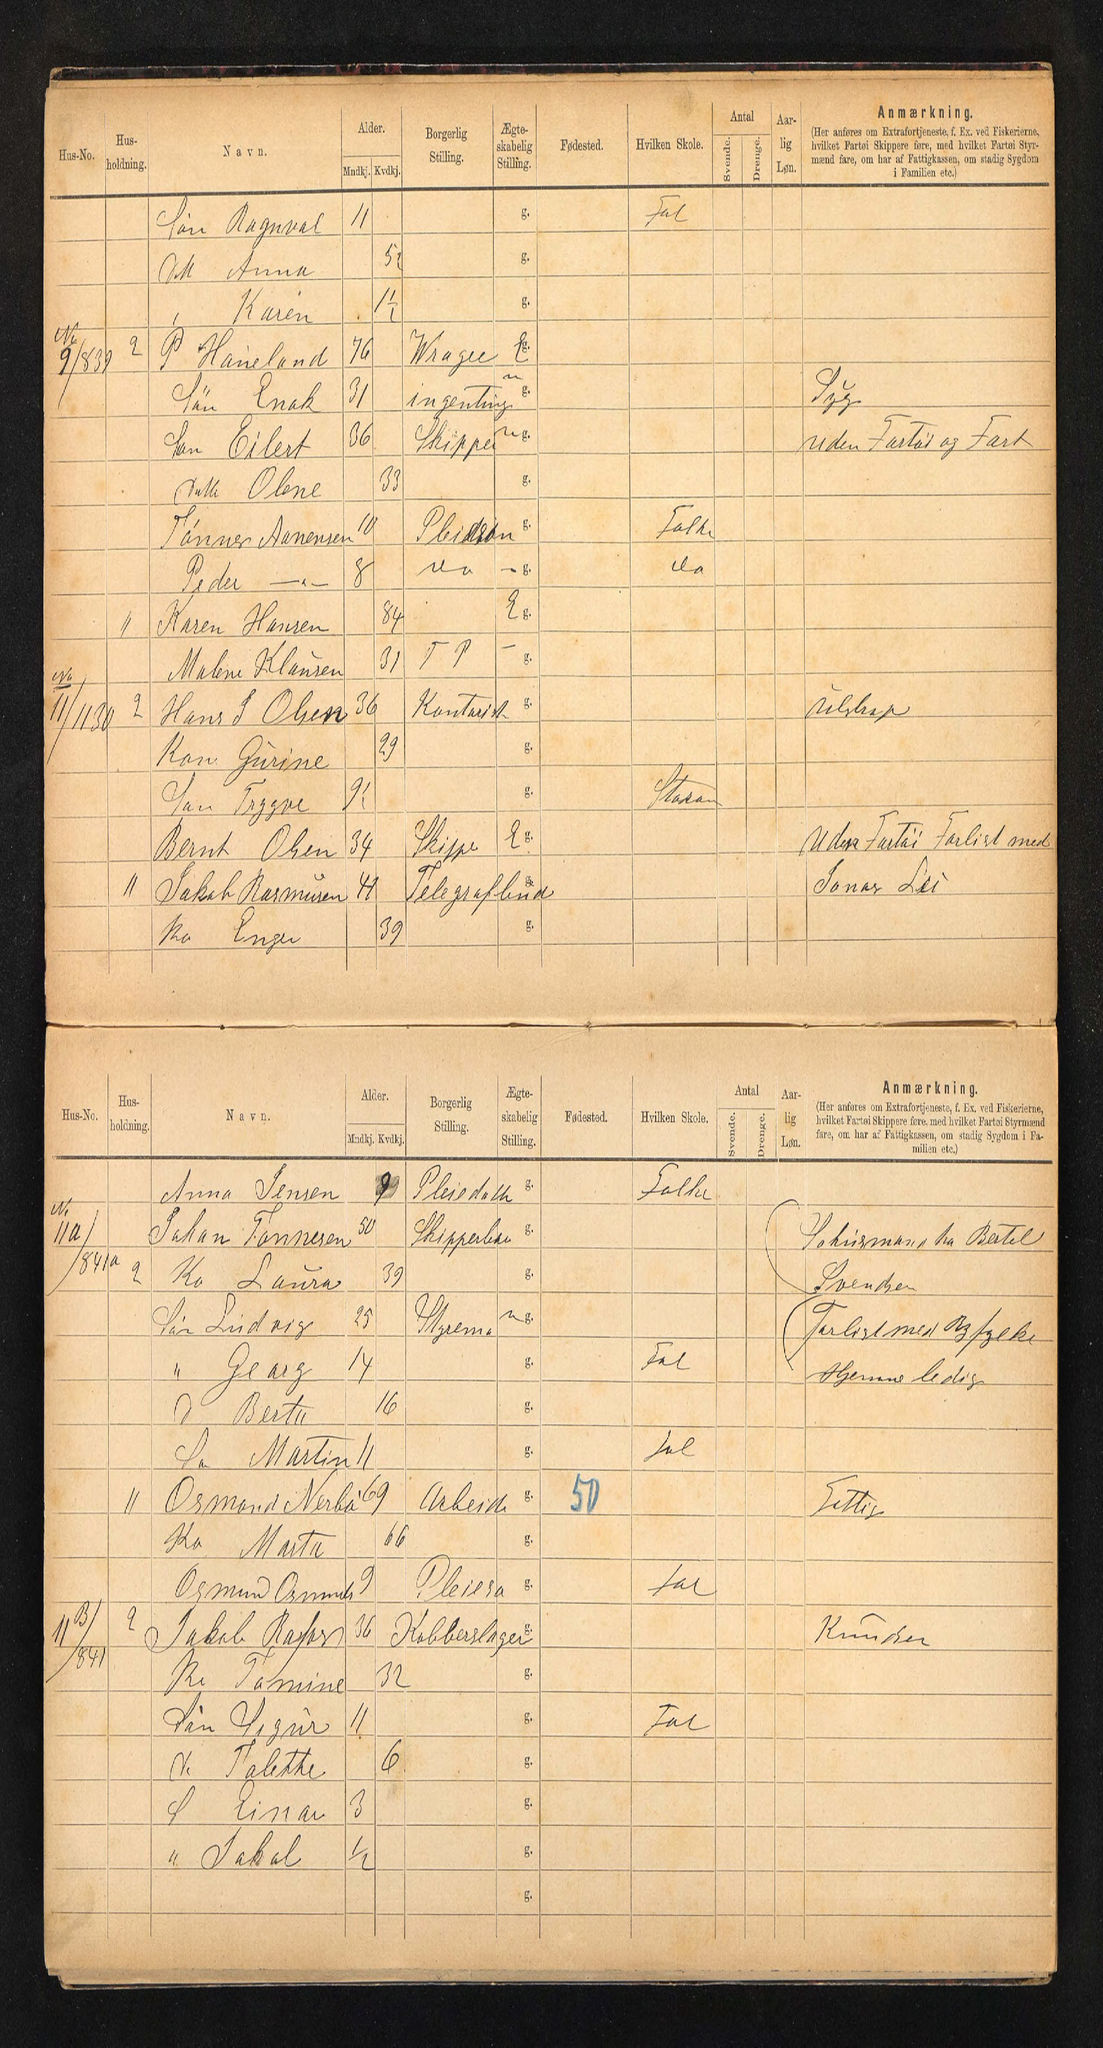 Hus-No. Hus-holdning. Navn. Alder. Mndkj. Kvdkj. Borgerlig Stilling. Ægte-skabelig Stilling. Fødested. Hvilken Skole. Antal Svende. Drenge. Aar-lig Løn. Anmærkning.
(Her anføres om Extrafortjeneste, f. Ex. ved Fiskerierne, hvilket Fartøi Skippere føre, med hvilket Fartøi Styrmænd fare, om har af Fattigkassen, om stadig Sygdom i Familien etc.)
Søn Ragnval 11 g. Fol
Dtt Anna 5½ g.
, Karen 1½ g.
No 9/839 2 P Haneland 76 Wrager E g.
Søn Enok 31 ingenting u g. Syg
Søn Eilert 36 Skipper u g. uden Fartøi og Fart
Datt Olene 33 g.
Tønnes Aanensen 10 Pleiesøn g. Folke
Peder —"— 8 do - g. do
" Karen Hansen 84 E g.
Malene Klausen 31 T P - g.
No 11/1130 2 Hans J Olsen 36 Kontorist g.
Kon Gurine 29 g.
Søn Trygve 9½ g.
Bernt Olsen 34 Skippe E g. Uden Fartøi Forlist med
" Jakob Rasmusen 41 Telegrafbud g. Jonas Lei
Ko Enger 39 g.
Hus-No. Hus-holdning. Navn. Alder. Mndkj. Kvdkj. Borgerlig Stilling. Ægte-skabelig Stilling. Fødested. Hvilken Skole. Antal Svende. Drenge. Aar-lig Løn. Anmærkning.
(Her anføres om Extrafortjeneste, f. Ex. ved Fiskerierne, hvilket Fartøi Skippere føre, med hvilket Fartøi Styrmænd fare, om har af Fattigkassen, om stadig Sygdom i Familien etc.)
Anna Jensen 9 Pleiedatt g. Folke
No 11a/841a Johan Tønnesen 50 g. Bertel
2 Ko Laura 39 g. Svendsen
Søn Ludvig 25 Styrema u g. Forlist med Ryfylke
" Georg 14 g. Fol Hjemme ledig
D Berta 16 g.
Sø Martin 11 g. Fol
" Osmond Nerbø 69 Arbeide g. 50 Fattig
Ko Marta 66 g.
Osmund Osmunds 9 Pleiesø g. Fol
11B/841 2 Jakob 36 Kobberslager g. Knudsen
Ko Tomine 32 g.
Søn Sigur 11 g. Fol
D Talette 6 g.
S Einar 3 g.
" Jakob ½ g.
g.